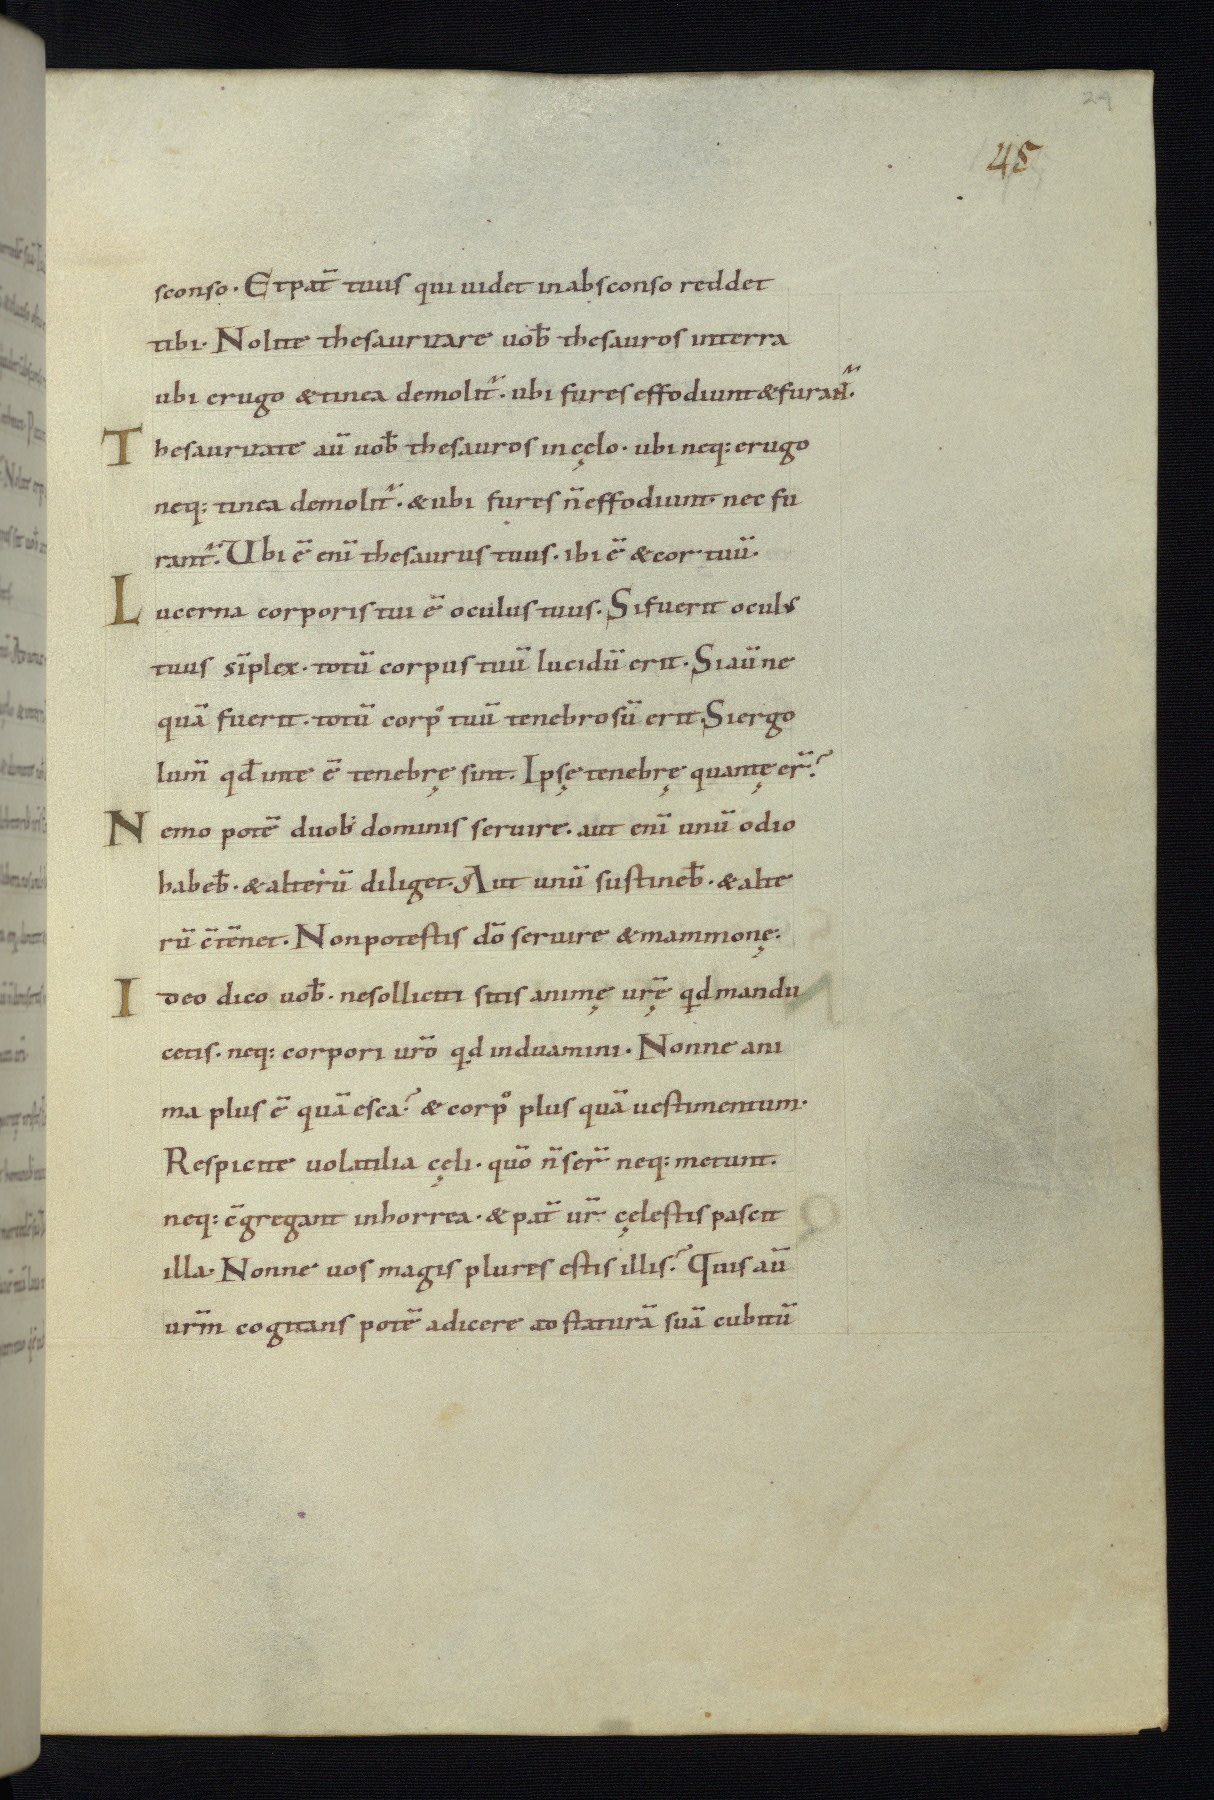 29
45
sconso. Et pat̄ tuus qui uidet in absconso reddet
tibi. Nolite thesaurizare uob̄ thesauros in terra
ubi erugo & tinea demolit̄. ubi fures effodiunt & furant̄.
Thesaurizate aū uob̄ thesauros in cęlo. ubi neq: erugo
neq: tinea demolit̄. & ubi fures n̄ effodiunt nec fu
rant̄. Ubi ē enī thesaurus tuus. ibi ē & cor tuū.
Lucerna corporis tui ē oculus tuus. Si fuerit oculus
tuus sīplex. totū corpus tuū lucidū erit. Si aū ne
quā fuerit. totū corpꝰ tuū tenebrosū erit. Si ergo
lum̄ qđ in te ē tenebrę sunt. Ipsę tenebrę quantę er̄?
Nemo potē duobꝰ dominis seruire. aut enī unū odio
habeb̄. & alterū diliget. Aut unū sustineb̄. & alte
rū c̄tēnet. Non potestis dō seruire & mammonę:
Ideo dico uob̄. ne solliciti sitis animę ur̄ę qd mandu
cetis. neq: corpori ur̄o qd induamini. Nonne ani
ma plus ē quā esca? & corpꝰ plus quā uestimentum.
Respicite uolatilia cęli. quō n̄ ser̄ neq: metunt.
neq: c̄gregant in horrea. & pat̄ ur̄ cęlestis pascit
illa. Nonne uos magis plures estis illis? Quis aū
ur̄m cogitans potē adicere ad staturā suā cubitū